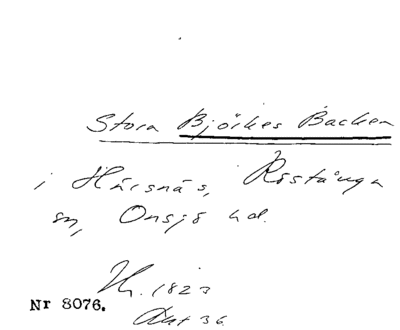 Stora Björkes Backen
i Härsnäs, Röstånga
sn, Onsjö hd.
1823
Nr 8076.
36